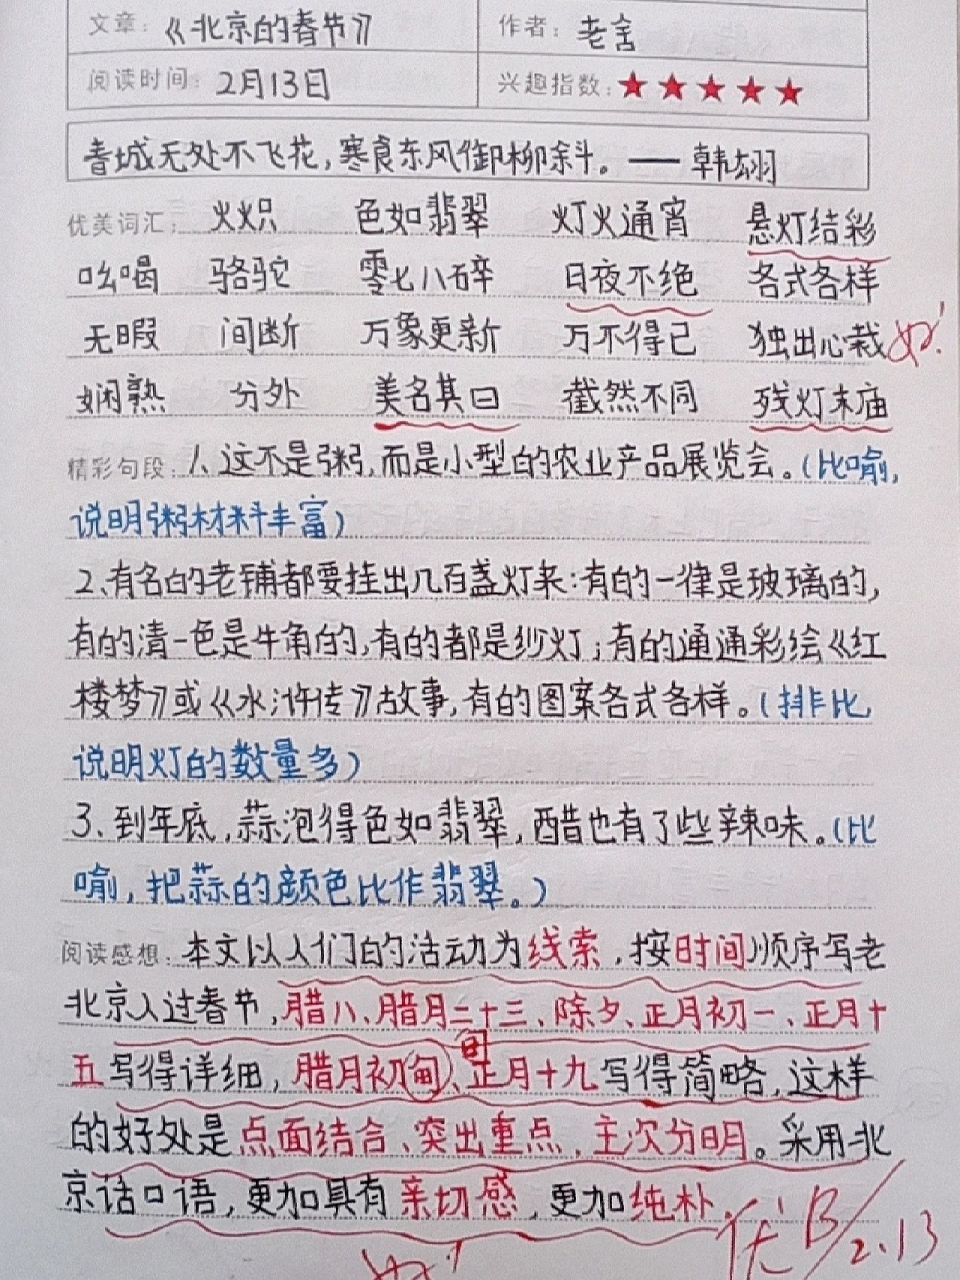 文章：《北京的春节》 作者：老舍
阅读时间：2月13日 兴趣指数：★★★★★
春城无处不飞花，寒食东风御柳斜。——韩翃
优美词汇： 火炽 色如翡翠 灯火通宵 悬灯结彩
吆喝 骆驼 零七八碎 日夜不绝 各式各样
无暇 间断 万象更新 万不得已 独出心裁 好！
娴熟 分外 美名其曰 截然不同 残灯末庙
精彩句段：1、这不是粥，而是小型的农业产品展览会。（比喻，
说明粥材料丰富）
2、有名的老铺都要挂出几百盏灯来：有的一律是玻璃的，
有的清一色是牛角的，有的都是纱灯；有的通通彩绘《红
楼梦》或《水浒传》故事，有的图案各式各样。（排比
说明灯的数量多）
3、到年底，蒜泡得色如翡翠，醋也有了些辣味。（比
喻，把蒜的颜色比作翡翠。）
阅读感想：本文以人们的活动为线索，按时间顺序写老
北京人过春节，腊八、腊月二十三、除夕、正月初一、正月十
五写得详细，腊月初旬、正月十九写得简略，这样
的好处是点面结合、突出重点、主次分明。采用北
京话口语，更加具有亲切感，更加纯朴。
好！ 优 B/2.13